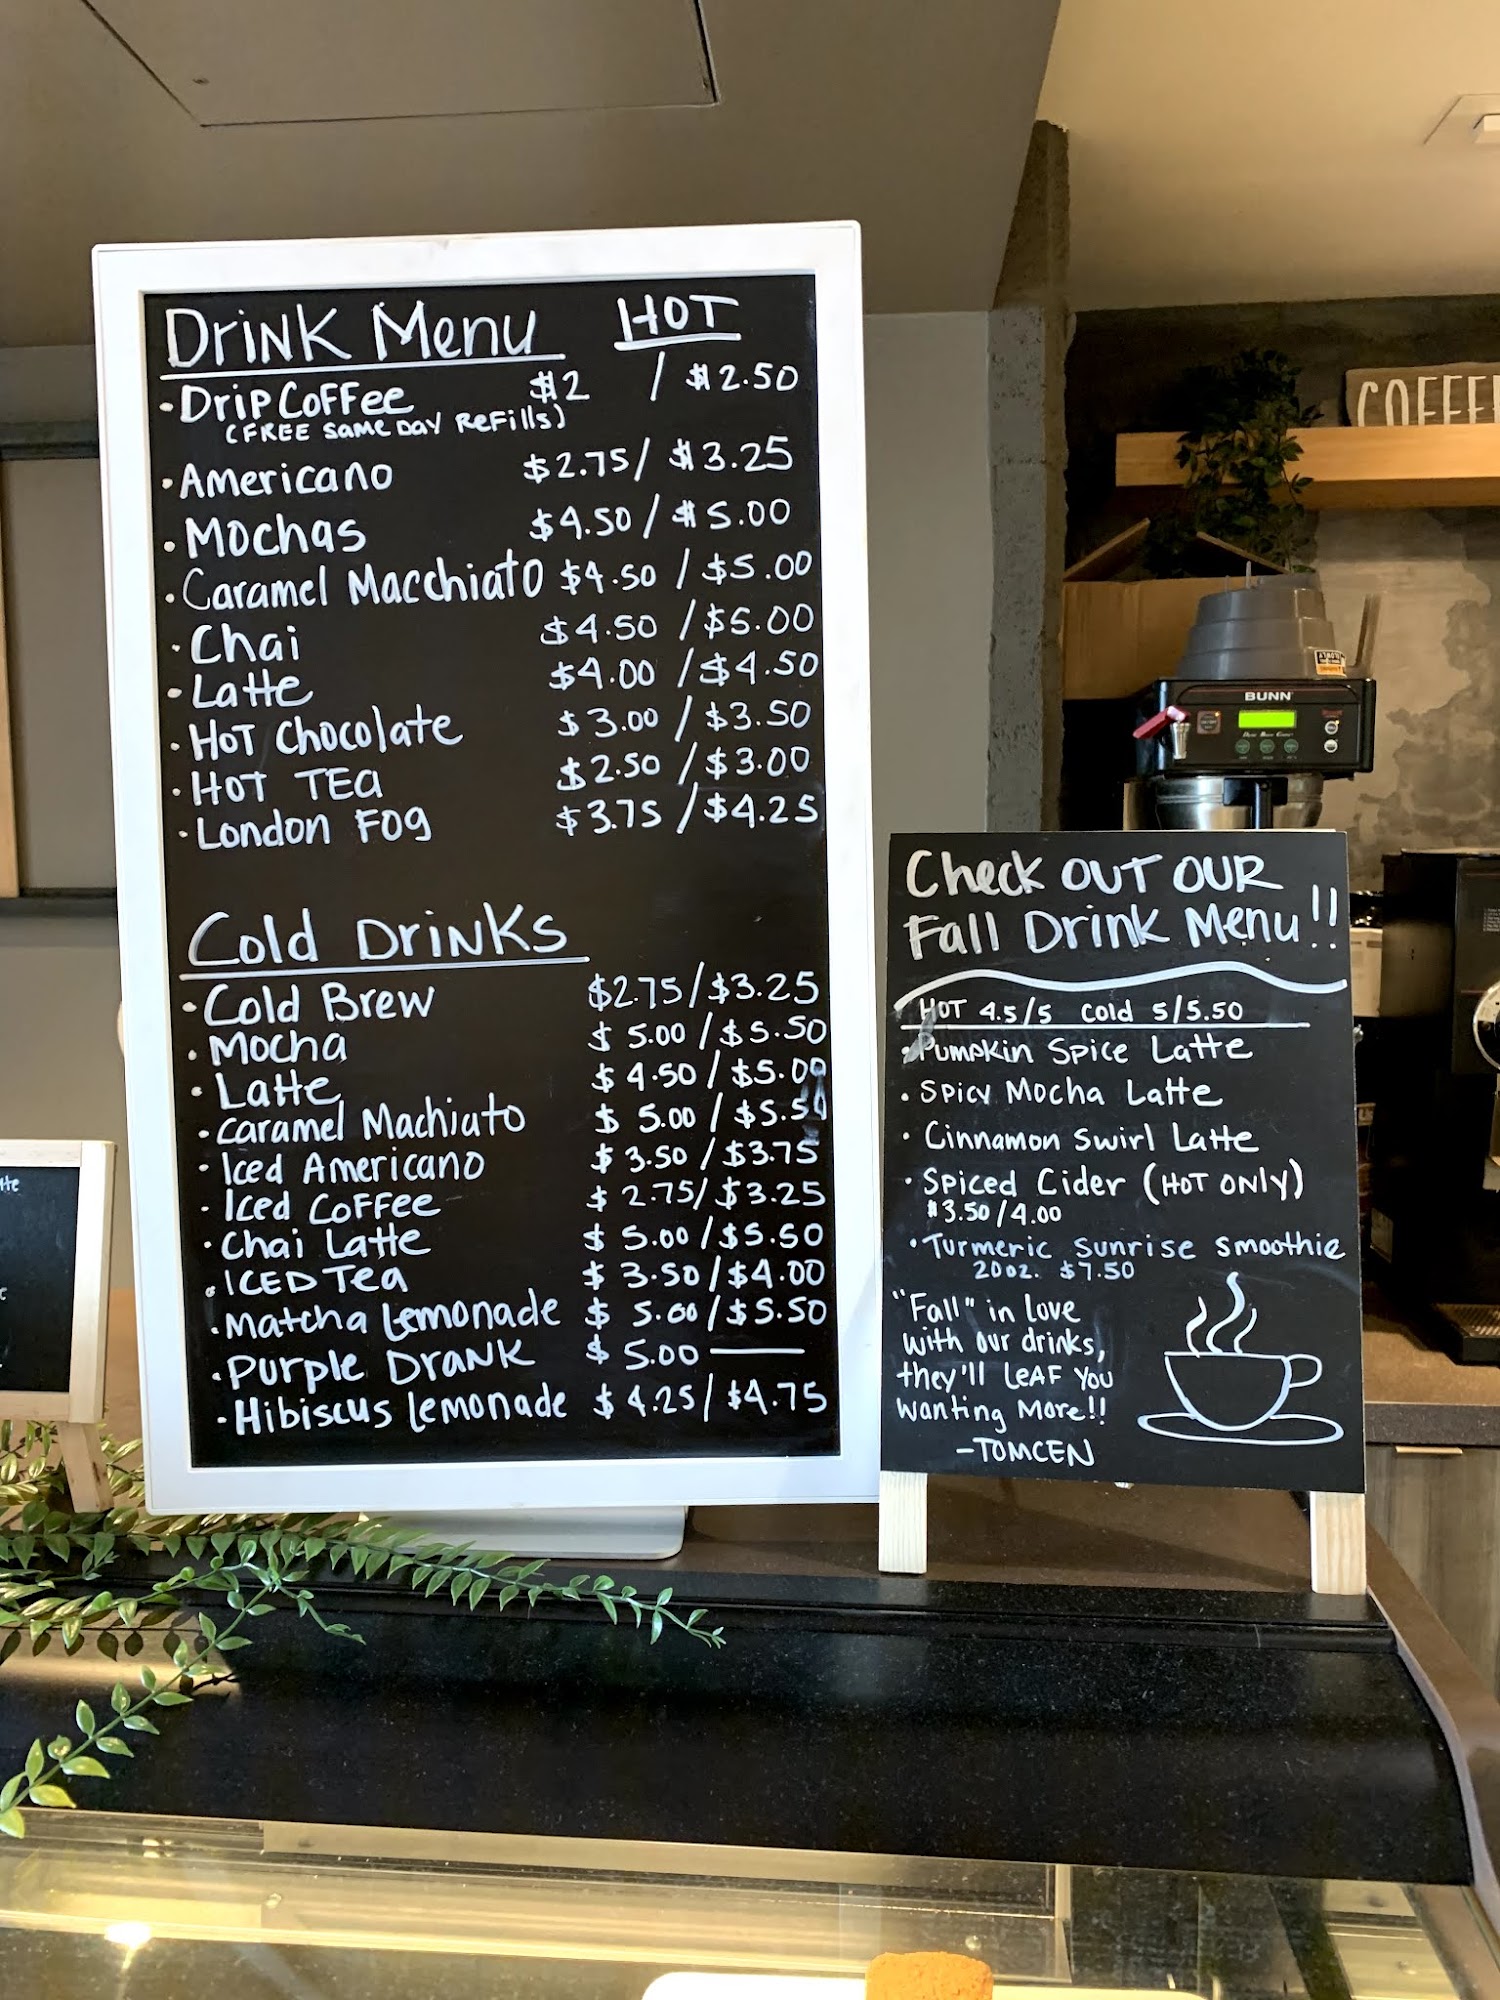 Drink Menu HOT
·Drip Coffee $2 / $2.50
(FREE same day Refills)
·Americano $2.75/ $3.25
·Mochas $4.50 / $5.00
·Caramel Macchiato $4.50 / $5.00
·Chai $4.50 /$5.00
·Latte $4.00 /$4.50
·Hot Chocolate $3.00 /$3.50
·Hot Tea $2.50 /$3.00
·London Fog $3.75 /$4.25
Cold Drinks
·Cold Brew $2.75/$3.25
·Mocha $5.00 /$5.50
·Latte $4.50 / $5.00
·Caramel Machiato $5.00 /$5.50
·Iced Americano $3.50 /$3.75
·Iced Coffee $2.75/$3.25
·Chai Latte $5.00/$5.50
·ICED Tea $3.50/$4.00
·Matcha Lemonade $5.00/$5.50
·Purple Drank $5.00 —
·Hibiscus Lemonade $4.25/$4.75
Check out our
Fall Drink Menu!!
HOT 4.5/5 Cold 5/5.50
·Pumpkin Spice Latte
·Spicy Mocha Latte
·Cinnamon Swirl Latte
·Spiced Cider (HOT ONLY)
$3.50/4.00
·Turmeric Sunrise Smoothie
20oz. $7.50
"Fall" in love
with our drinks,
they'll leAF you
wanting more!!
-TOMCEN
BUNN